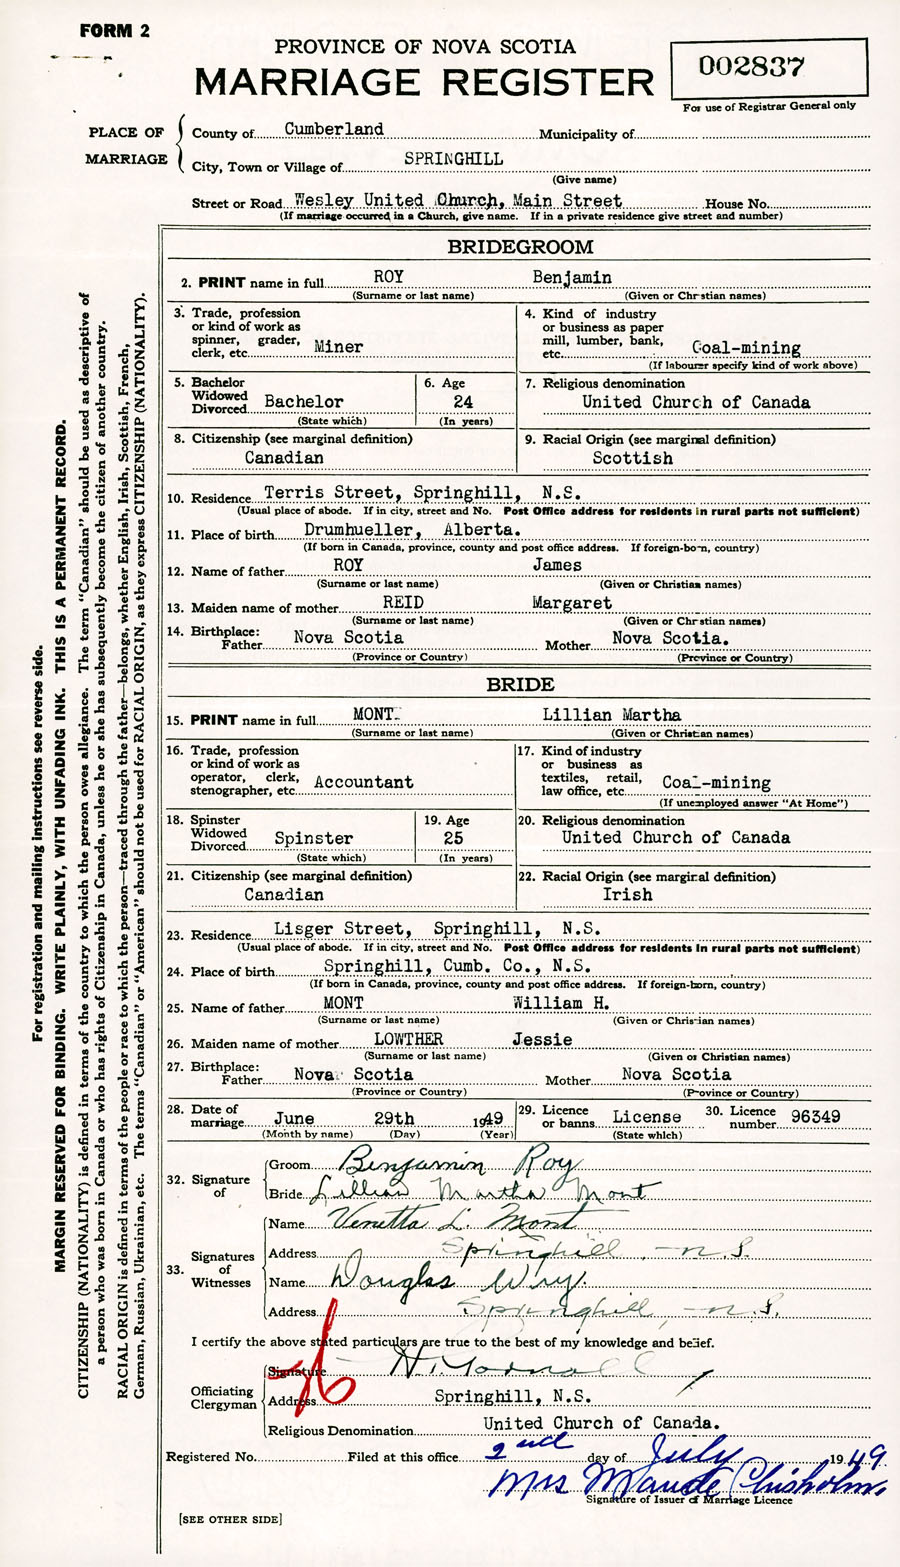 FORM 2
PROVINCE OF NOVA SCOTIA
MARRIAGE REGISTER
002837
For use of Registrar General only
PLACE OF MARRIAGE
County of Cumberland Municipality of
City, Town or Village of SPRINGHILL
(Give name)
Street or Road Wesley United Church, Main Street House No.
(If marriage occurred in a Church, give name. If in a private residence give street and number)
BRIDEGROOM
2. PRINT name in full ROY Benjamin
(Surname or last name) (Given or Christian names)
3. Trade, profession or kind of work as spinner, grader, clerk, etc. Miner
4. Kind of industry or business as paper mill, lumber, bank, etc. Coal-mining
(If labourer specify kind of work above)
5. Bachelor Widowed Divorced Bachelor
(State which)
6. Age 24
(In years)
7. Religious denomination
United Church of Canada
8. Citizenship (see marginal definition)
Canadian
9. Racial Origin (see marginal definition)
Scottish
10. Residence Terris Street, Springhill, N.S.
(Usual place of abode. If in city, street and No. Post Office address for residents in rural parts not sufficient)
11. Place of birth Drumhueller, Alberta.
(If born in Canada, province, county and post office address. If foreign-born, country)
12. Name of father ROY James
(Surname or last name) (Given or Christian names)
13. Maiden name of mother REID Margaret
(Surname or last name) (Given or Christian names)
14. Birthplace: Father Nova Scotia Mother Nova Scotia.
(Province or Country) (Province or Country)
BRIDE
15. PRINT name in full MONT Lillian Martha
(Surname or last name) (Given or Christian names)
16. Trade, profession or kind of work as operator, clerk, stenographer, etc. Accountant
17. Kind of industry or business as textiles, retail, law office, etc. Coal-mining
(If unemployed answer "At Home")
18. Spinster Widowed Divorced Spinster
(State which)
19. Age 25
(In years)
20. Religious denomination
United Church of Canada
21. Citizenship (see marginal definition)
Canadian
22. Racial Origin (see marginal definition)
Irish
23. Residence Lisger Street, Springhill, N.S.
(Usual place of abode. If in city, street and No. Post Office address for residents in rural parts not sufficient)
24. Place of birth Springhill, Cumb. Co., N.S.
(If born in Canada, province, county and post office address. If foreign-born, country)
25. Name of father MONT William H.
(Surname or last name) (Given or Christian names)
26. Maiden name of mother LOWTHER Jessie
(Surname or last name) (Given or Christian names)
27. Birthplace: Father Nova Scotia Mother Nova Scotia
(Province or Country) (Province or Country)
28. Date of marriage June 29th 1949
(Month by name) (Day) (Year)
29. Licence or banns License
(State which)
30. Licence number 96349
32. Signature of
Groom Benjamin Roy
Bride Lillian Martha Mont
33. Signatures of Witnesses
Name Venetta L. Mont
Address Springhill, N.S.
Name Douglas Wry.
Address Springhill, N.S.
I certify the above stated particulars are true to the best of my knowledge and belief.
Officiating Clergyman
Signature H.
Address Springhill, N.S.
Religious Denomination United Church of Canada.
Registered No. Filed at this office 2nd day of July 1949.
Mrs Maude Chisholm,
Signature of Issuer of Marriage Licence
[SEE OTHER SIDE]
For registration and mailing instructions see reverse side.
MARGIN RESERVED FOR BINDING. WRITE PLAINLY, WITH UNFADING INK. THIS IS A PERMANENT RECORD.
CITIZENSHIP (NATIONALITY) is defined in terms of the country to which the person owes allegiance. The term "Canadian" should be used as descriptive of
a person who was born in Canada or who has rights of Citizenship in Canada, unless he or she has subsequently become the citizen of another country.
RACIAL ORIGIN is defined in terms of the people or race to which the person—traced through the father—belongs, whether English, Irish, Scottish, French,
German, Russian, Ukrainian, etc. The terms "Canadian" or "American" should not be used for RACIAL ORIGIN, as they express CITIZENSHIP (NATIONALITY).